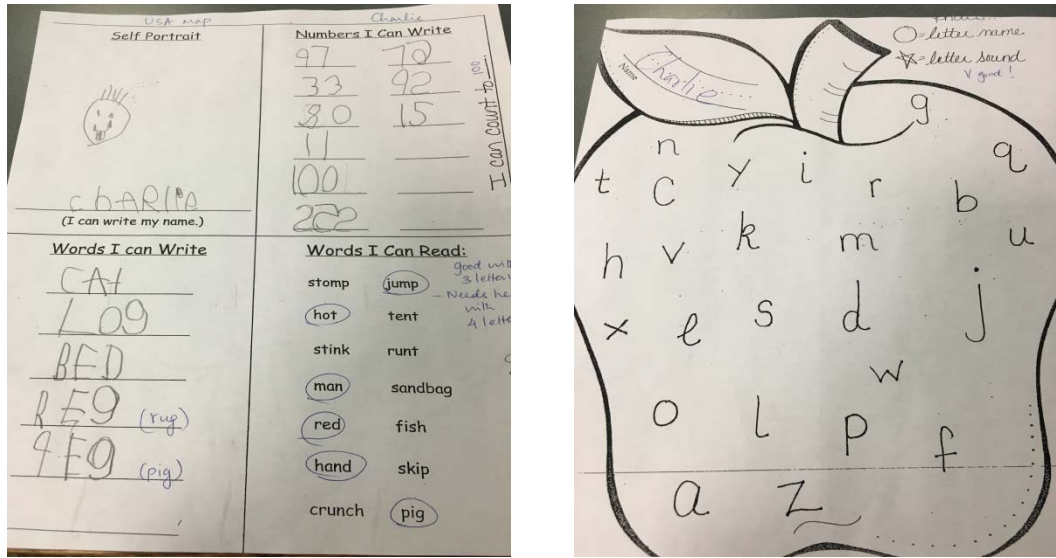 USA map
Charlie
Self Portrait
chARlIe
(I can write my name.)
Numbers I Can Write
97 72
33 92
80 15
11
100
202
I can count to 100
Words I can Write
CAt
LO9
BED
RE9 (rug)
PE9 (pig)
Words I Can Read:
stomp jump
hot tent
stink runt
man sandbag
red fish
hand skip
crunch pig
good
3 letter
- Needs
with
4
Name Charlie
= letter name
= letter sound
V good!
g
n q
t C y i r b
h v k m u
x e s d j
w
o l p f
a z